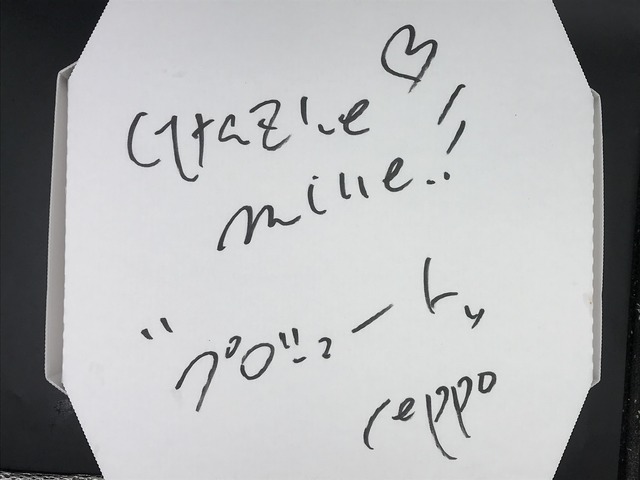 Grazie ♡
mille..!
"プロジュート"
ceppo